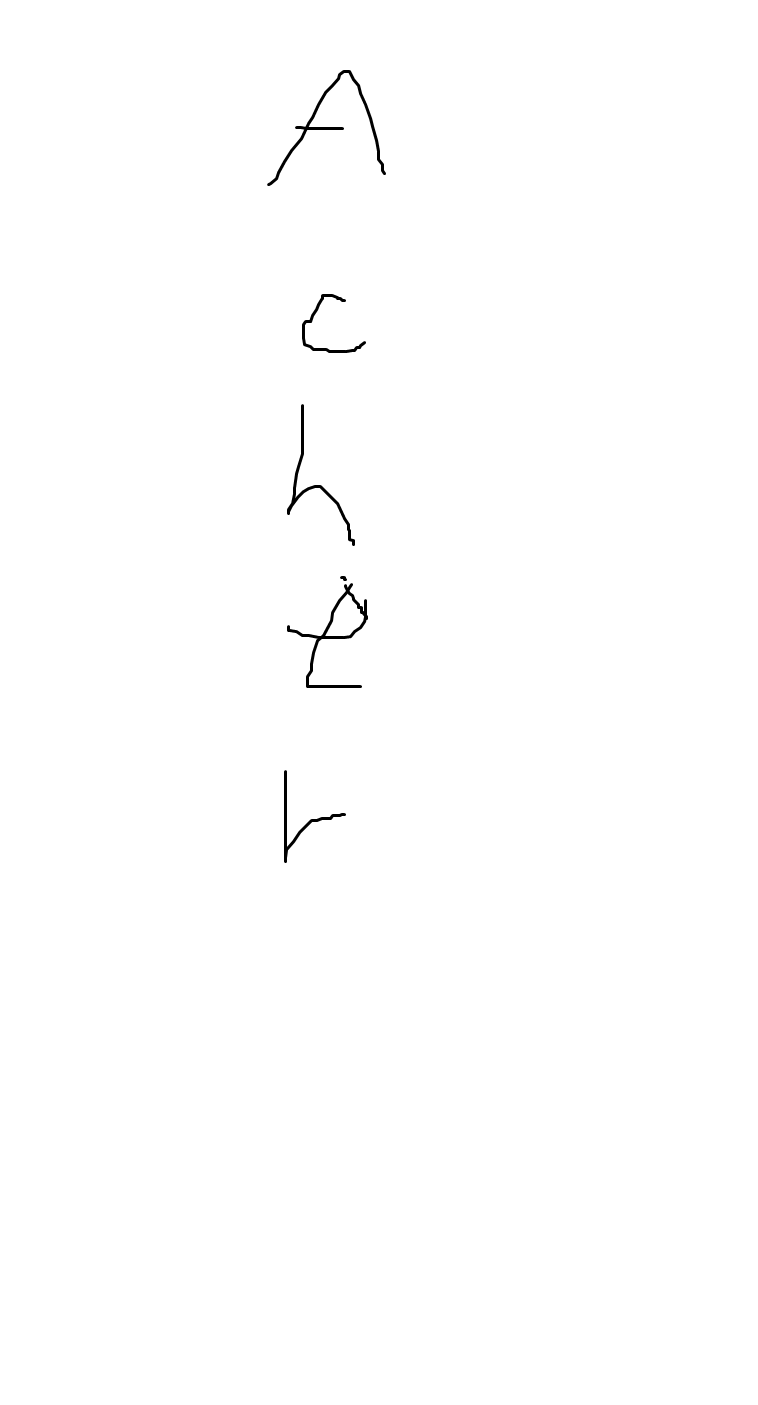 A
c
h
e
r